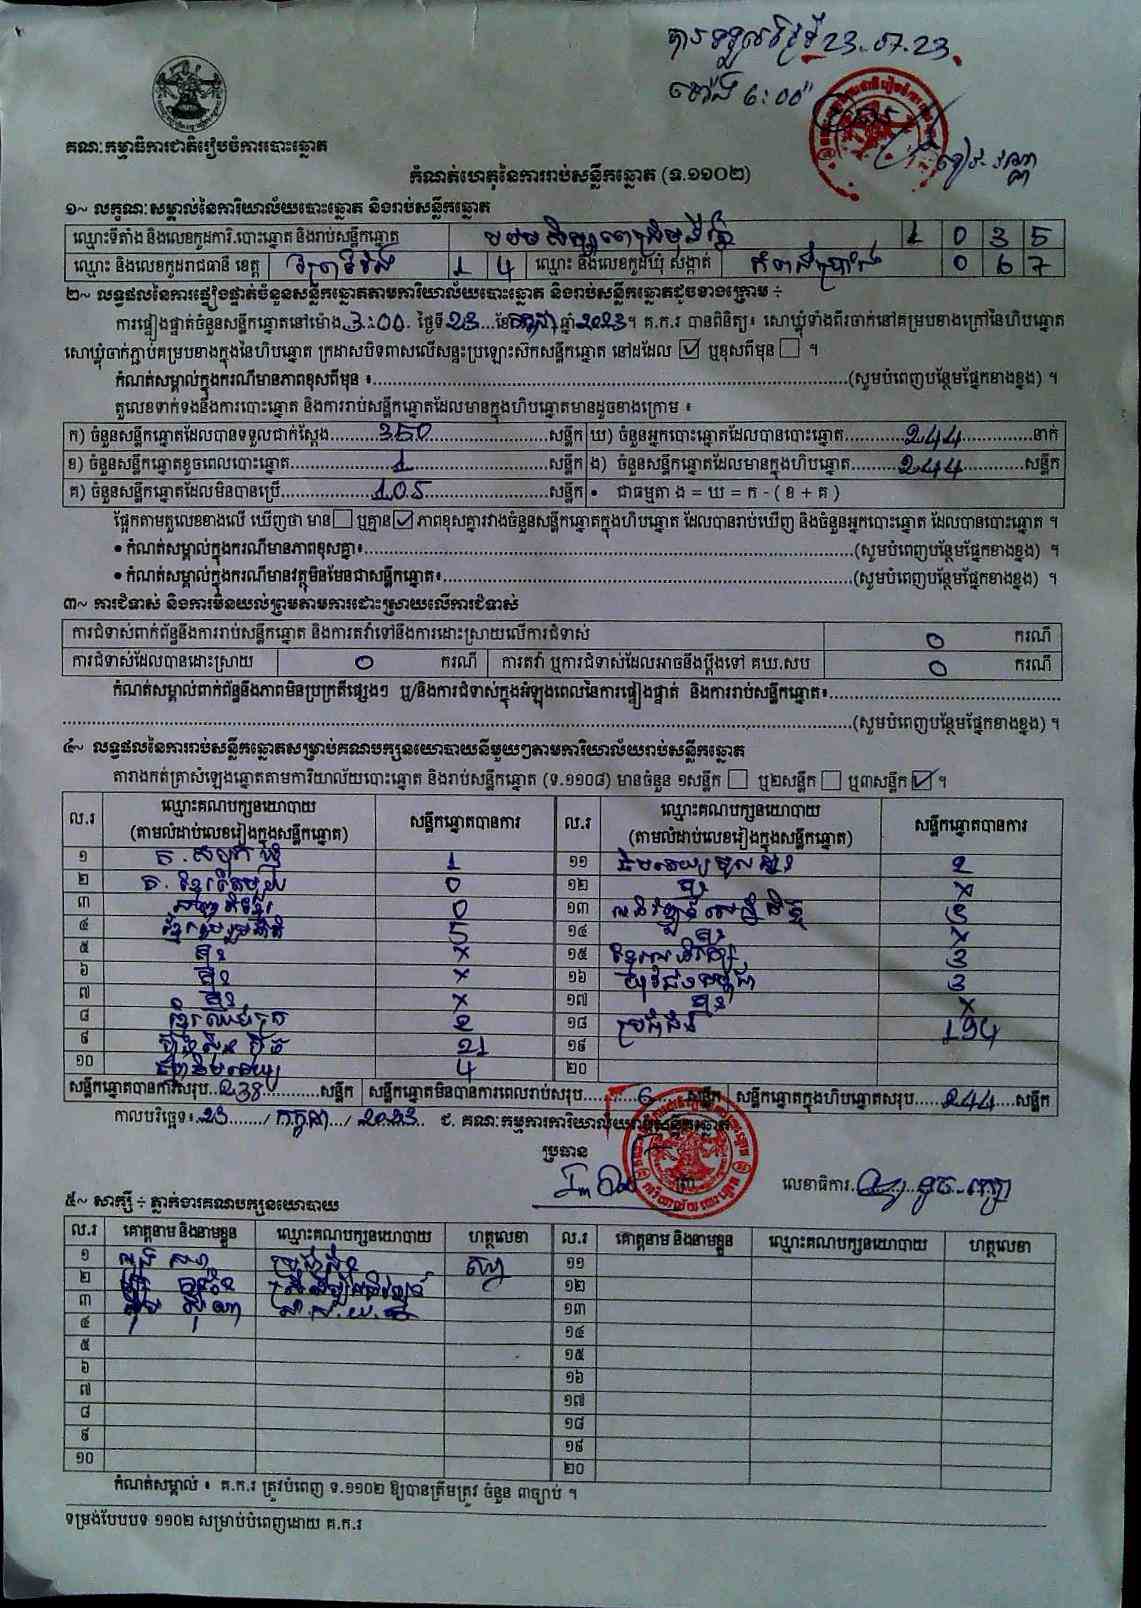 បានទទួលថ្ងៃទី 23.07.23
ម៉ោង 6:00
គណៈកម្មាធិការជាតិរៀបចំការបោះឆ្នោត
កំណត់ហេតុនៃការរាប់សន្លឹកឆ្នោត (ទ.១១០២)
១~ លក្ខណៈសម្គាល់នៃការិយាល័យបោះឆ្នោត និងរាប់សន្លឹកឆ្នោត
ឈ្មោះទីតាំង និងលេខកូដការិ.បោះឆ្នោត និងរាប់សន្លឹកឆ្នោត 1 0 3 5
ឈ្មោះ និងលេខកូដរាជធានី ខេត្ត ព្រៃវែង 1 4 ឈ្មោះ និងលេខកូដឃុំ សង្កាត់ កំពង់ប្រាំង 0 6 7
២~ លទ្ធផលនៃការផ្ទៀងផ្ទាត់ចំនួនសន្លឹកឆ្នោតតាមការិយាល័យបោះឆ្នោត និងរាប់សន្លឹកឆ្នោតដូចខាងក្រោម ÷
ការផ្ទៀងផ្ទាត់ចំនួនសន្លឹកឆ្នោតនៅម៉ោង 3:00 ថ្ងៃទី 23 ខែ កក្កដា ឆ្នាំ 2023។ គ.ក.រ បានពិនិត្យ៖ សោឃ្លុំទាំងពីរចាក់នៅគម្របខាងក្រៅនៃហិបឆ្នោត
សោឃ្លុំចាក់ភ្ជាប់គម្របខាងក្នុងនៃហិបឆ្នោត ក្រដាសបិទពាសលើសន្ទះប្រឡោះស៊កសន្លឹកឆ្នោត នៅដដែល ☑ ឬខុសពីមុន ☐ ។
កំណត់សម្គាល់ក្នុងករណីមានភាពខុសពីមុន ៖ (សូមបំពេញបន្ថែមផ្នែកខាងខ្នង) ។
តួលេខទាក់ទងនឹងការបោះឆ្នោត និងការរាប់សន្លឹកឆ្នោតដែលមានក្នុងហិបឆ្នោតមានដូចខាងក្រោម ៖
ក) ចំនួនសន្លឹកឆ្នោតដែលបានទទួលជាក់ស្តែង 350 សន្លឹក ឃ) ចំនួនអ្នកបោះឆ្នោតដែលបានបោះឆ្នោត 244 នាក់
ខ) ចំនួនសន្លឹកឆ្នោតខូចពេលបោះឆ្នោត 1 សន្លឹក ង) ចំនួនសន្លឹកឆ្នោតដែលមានក្នុងហិបឆ្នោត 244 សន្លឹក
គ) ចំនួនសន្លឹកឆ្នោតដែលមិនបានប្រើ 105 សន្លឹក • ជាធម្មតា ង = ឃ = ក - ( ខ + គ )
ផ្អែកតាមតួលេខខាងលើ ឃើញថា មាន ☐ ឬគ្មាន ☑ ភាពខុសគ្នារវាងចំនួនសន្លឹកឆ្នោតក្នុងហិបឆ្នោត ដែលបានរាប់ឃើញ និងចំនួនអ្នកបោះឆ្នោត ដែលបានបោះឆ្នោត ។
• កំណត់សម្គាល់ក្នុងករណីមានភាពខុសគ្នា៖ (សូមបំពេញបន្ថែមផ្នែកខាងខ្នង) ។
• កំណត់សម្គាល់ក្នុងករណីមានវត្ថុមិនមែនជាសន្លឹកឆ្នោត៖ (សូមបំពេញបន្ថែមផ្នែកខាងខ្នង) ។
៣~ ការជំទាស់ និងការមិនយល់ព្រមតាមការដោះស្រាយលើការជំទាស់
ការជំទាស់ពាក់ព័ន្ធនឹងការរាប់សន្លឹកឆ្នោត និងការតវ៉ាទៅនឹងការដោះស្រាយលើការជំទាស់ 0 ករណី
ការជំទាស់ដែលបានដោះស្រាយ 0 ករណី ការតវ៉ា ឬការជំទាស់ដែលអាចនឹងប្តឹងទៅ គឃ.សប 0 ករណី
កំណត់សម្គាល់ពាក់ព័ន្ធនឹងភាពមិនប្រក្រតីផ្សេងៗ ឬ/និងការជំទាស់ក្នុងអំឡុងពេលនៃការផ្ទៀងផ្ទាត់ និងការរាប់សន្លឹកឆ្នោត៖
(សូមបំពេញបន្ថែមផ្នែកខាងខ្នង) ។
៤~ លទ្ធផលនៃការរាប់សន្លឹកឆ្នោតសម្រាប់គណបក្សនយោបាយនីមួយៗតាមការិយាល័យរាប់សន្លឹកឆ្នោត
តារាងកត់ត្រាសំឡេងឆ្នោតតាមការិយាល័យបោះឆ្នោត និងរាប់សន្លឹកឆ្នោត (ទ.១១០៨) មានចំនួន ១សន្លឹក ☐ ឬ២សន្លឹក ☐ ឬ៣សន្លឹក ☑ ។
ល.រ ឈ្មោះគណបក្សនយោបាយ (តាមលំដាប់លេខរៀងក្នុងសន្លឹកឆ្នោត) សន្លឹកឆ្នោតបានការ ល.រ ឈ្មោះគណបក្សនយោបាយ (តាមលំដាប់លេខរៀងក្នុងសន្លឹកឆ្នោត) សន្លឹកឆ្នោតបានការ
១ 1 ១១ 2
២ 0 ១២ គ្មាន x
៣ 0 ១៣ 3
៤ 5 ១៤ គ្មាន x
៥ គ្មាន x ១៥ 3
៦ គ្មាន x ១៦ 3
៧ គ្មាន x ១៧ គ្មាន x
៨ 2 ១៨ ប្រជាជន 194
៩ 21 ១៩
១០ 4 ២០
សន្លឹកឆ្នោតបានការសរុប 238 សន្លឹក សន្លឹកឆ្នោតមិនបានការពេលរាប់សរុប 6 សន្លឹក សន្លឹកឆ្នោតក្នុងហិបឆ្នោតសរុប 244 សន្លឹក
កាលបរិច្ឆេទ៖ 23 / កក្កដា / 2023 ជ. គណៈកម្មការការិយាល័យរាប់សន្លឹកឆ្នោត
ប្រធាន
លេខាធិការ
៥~ សាក្សី ÷ ភ្នាក់ងារគណបក្សនយោបាយ
ល.រ គោត្តនាម និងនាមខ្លួន ឈ្មោះគណបក្សនយោបាយ ហត្ថលេខា ល.រ គោត្តនាម និងនាមខ្លួន ឈ្មោះគណបក្សនយោបាយ ហត្ថលេខា
១ ប្រជាជន ១១
២ ១២
៣ ១៣
៤ ១៤
៥ ១៥
៦ ១៦
៧ ១៧
៨ ១៨
៩ ១៩
១០ ២០
កំណត់សម្គាល់ ៖ គ.ក.រ ត្រូវបំពេញ ទ.១១០២ ឱ្យបានត្រឹមត្រូវ ចំនួន ៣ច្បាប់ ។
ទម្រង់បែបបទ ១១០២ សម្រាប់បំពេញដោយ គ.ក.រ